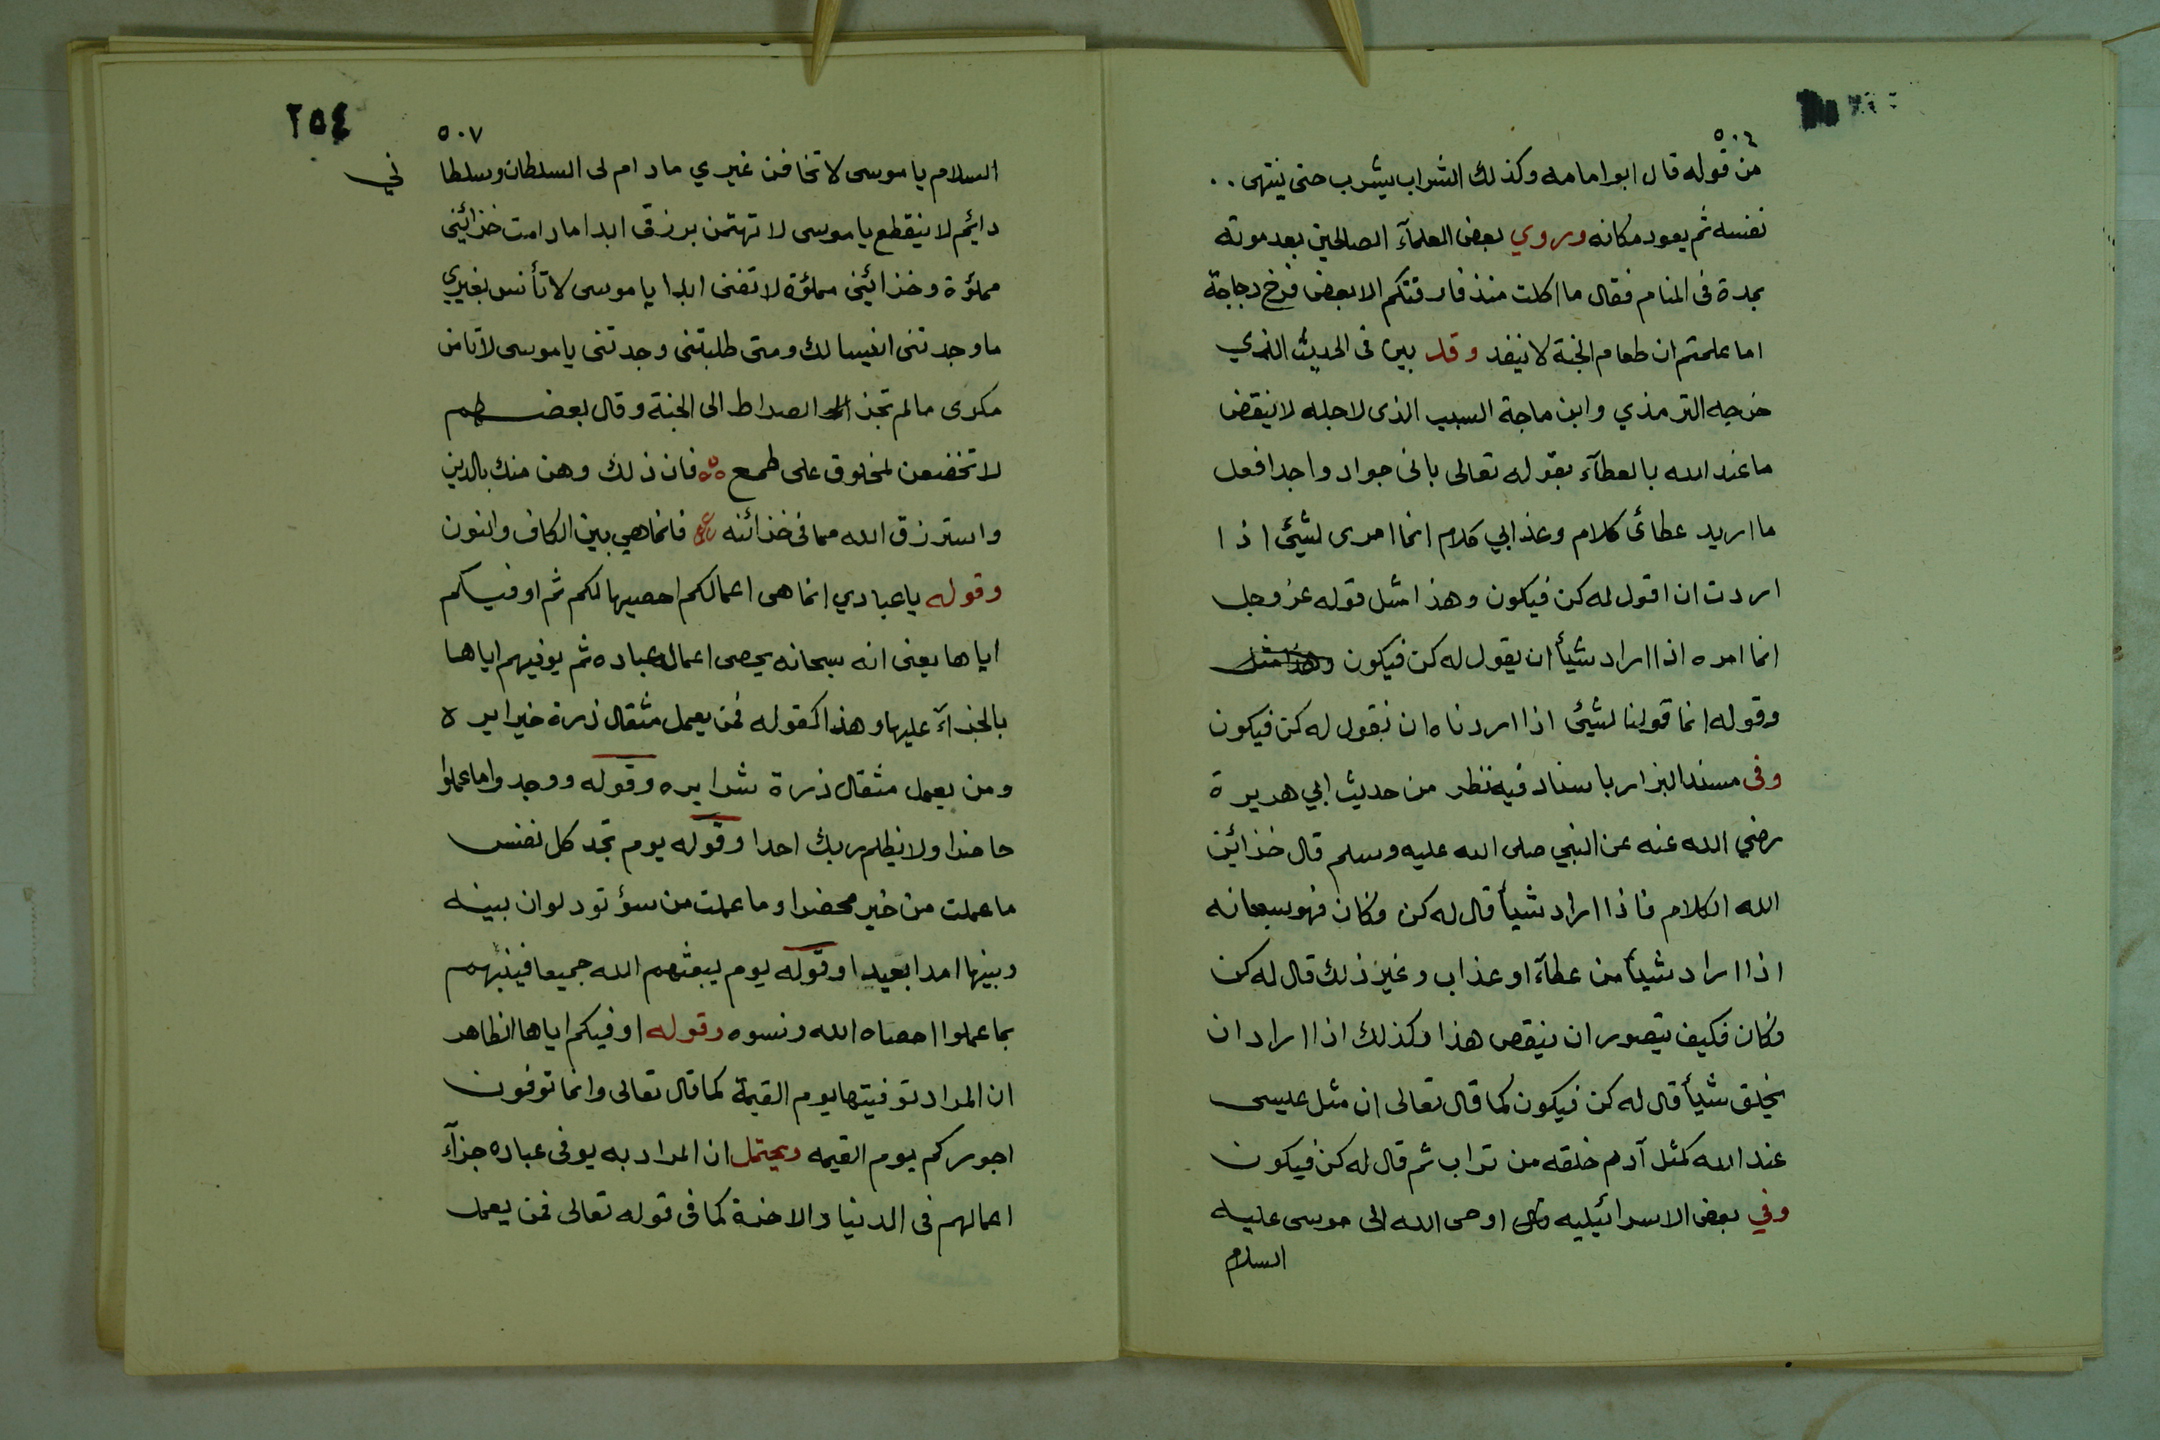 ٥٠٦
من قوله قال ابوامامه وكذلك الشراب يشرب حتى ينتهى
نفسه ثم يعود مكانه وروي بعض العلمآء الصالحين بعد موته
بمدة فى المنام فقال ما اكلت منذ فارقتكم الا بعض فرخ دجاجة
اما علمتم ان طعام الجنة لا ينفد وقد بين فى الحديث الذي
خرجه الترمذي وابن ماجة السبب الذى لاجله لا ينقض
ما عند الله بالعطآء بقوله تعالى بانى جواد واجد افعل
ما اريد عطائى كلام وعذابي كلام انما امرى لشيئ اذا
اردت ان اقول له كن فيكون وهذا مثل قوله عز وجل
انما امره اذا اراد شيأ ان يقول له كن فيكون وهذا مثل
وقوله انما قولنا لشيئ اذا اردناه ان نقول له كن فيكون
وفى مسند البزار باسناد فيه نظر من حديث ابي هريرة
رضي الله عنه عن النبي صلى الله عليه وسلم قال خزائين
الله الكلام فاذا اراد شيأ قال له كن فكان فهو سبحانه
اذا اراد شيأ من عطآء او عذاب وغير ذلك قال له كن
فكان فكيف يتصور ان ينقص هذا وكذلك اذا اراد ان
يخلق شيأ قال له كن فيكون كما قال تعالى ان مثل عيسى
عند الله كمثل آدم خلقه من تراب ثم قال له كن فيكون
وفي بعض الاسرائيليه قال اوحى الله الى موسى عليه
السلام
٢٥٤
٥٠٧
السلام يا موسى لا تخافن غيري ما دام لى السلطان وسلطا ني
دايم لا ينقطع يا موسى لا تهتمن برزق ابدا ما دامت خزائينى
مملؤة وخزائينى مملؤة لا تفنى ابدا يا موسى لا تأنس بغيري
ما وجدتنى انيسا لك ومتى طلبتنى وجدتنى يا موسى لا تامن
مكرى ما لم تجز الصراط الى الجنة وقال بعضهم
لا تخضعن لمخلوق على طمع فان ذلك وهن منك بالدين
واسترزق الله مما فى خزائنه فانما هي بين الكاف والنون
وقوله يا عبادي انما هى اعمالكم احصيها لكم ثم اوفيكم
اياها يعنى انه سبحانه يحصى اعمال عباده ثم يوفيهم اياها
بالجزآء عليها وهذا كقوله فمن يعمل مثقال ذرة خيرا يره
ومن يعمل مثقال ذرة شرا يره وقوله ووجدوا ما عملوا
حاضرا ولا يظلم ربك احدا وقوله يوم تجد كل نفس
ما عملت من خير محضرا وما عملت من سؤ تود لوان بينه
وبينها امدا بعيدا وقوله يوم يبعثهم الله جميعا فينبئهم
بما عملوا احصاه الله ونسوه وقوله اوفيكم اياها الظاهر
ان المراد توفيتها يوم القيمة كما قال تعالى وانما توفون
اجوركم يوم القيمه ويحتمل ان المراد به يوفى عباده جزآء
اعمالهم فى الدنيا والاخرة كما فى قوله تعالى فمن يعمل